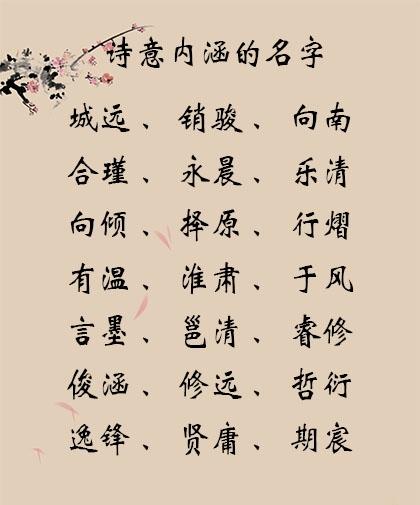 诗意内涵的名字
城远、销骏、向南
合瑾、永晨、乐清
向倾、择原、行熠
有温、淮肃、于风
言墨、邕清、睿修
俊涵、修远、哲衍
逸锋、贤庸、期宸